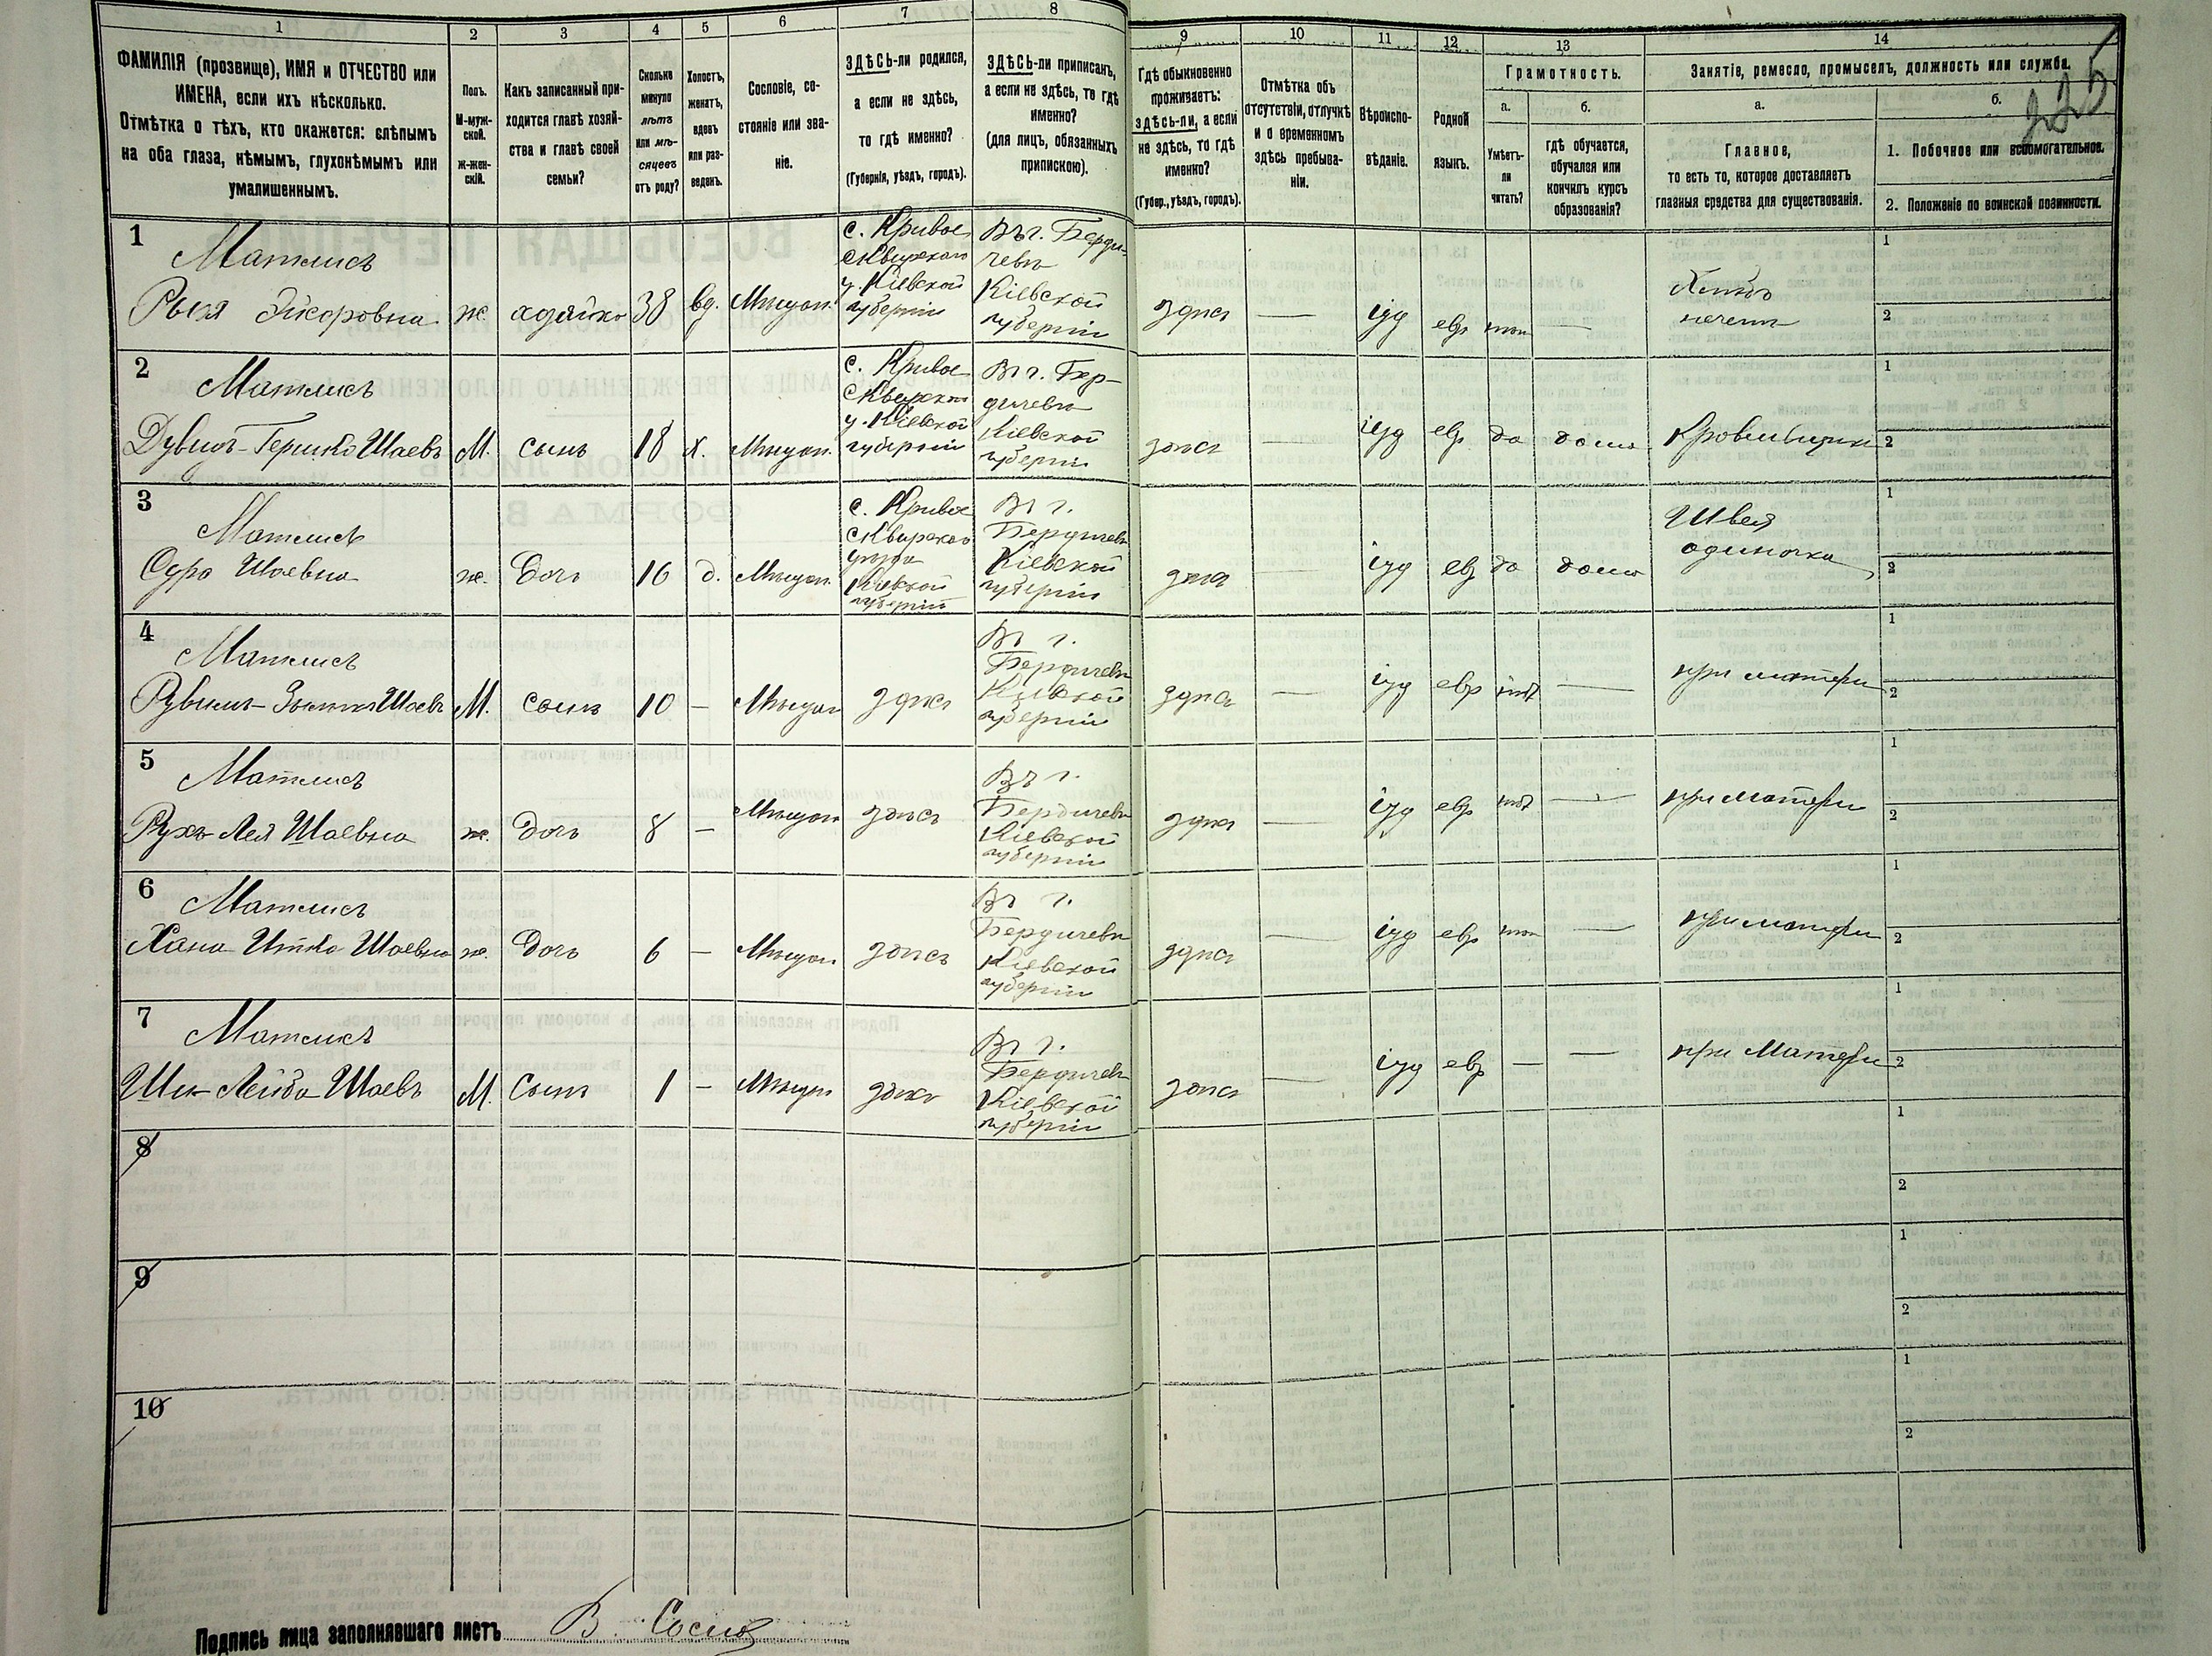 1
2
3
4
5
6
7
8
9
10
11
12
13
14
225
ФАМИЛІЯ (прозвище), ИМЯ и ОТЧЕСТВО или
ИМЕНА, если ихъ нѣсколько.
Отмѣтка о тѣхъ, кто окажется: слѣпымъ
на оба глаза, нѣмымъ, глухонѣмымъ или
умалишеннымъ.
Полъ.
М-муж-
ской.
ж-жен-
скій.
Какъ записанный при-
ходится главѣ хозяй-
ства и главѣ своей
семьи?
Сколько
минуло
лѣтъ
или мѣ-
сяцевъ
отъ роду?
Холостъ,
женатъ,
вдовъ
или раз-
веденъ.
Сословіе, со-
стояніе или зва-
ніе.
ЗДѢСЬ-ли родился,
а если не здѣсь,
то гдѣ именно?
(Губернія, уѣздъ, городъ).
ЗДѢСЬ-ли приписанъ,
а если не здѣсь, то гдѣ
именно?
(для лицъ, обязанныхъ
припискою).
Гдѣ обыкновенно
проживаетъ:
здѣсь-ли, а если
не здѣсь, то гдѣ
именно?
(Губер., уѣздъ, городъ).
Отмѣтка объ
отсутствіи, отлучкѣ
и о временномъ
здѣсь пребыва-
ніи.
Вѣроиспо-
вѣданіе.
Родной
языкъ.
Грамотность.
а.
Умѣетъ-
ли
читать?
б.
гдѣ обучается,
обучался или
кончилъ курсъ
образованія?
Занятіе, ремесло, промыселъ, должность или служба.
а.
Главное,
то есть то, которое доставляетъ
главныя средства для существованія.
б.
1. Побочное или вспомогательное.
2. Положеніе по воинской повинности.
1
Матлисъ
ж.
38
вд.
Мѣщан.
с. Кривое
Сквирскаго
у. Кіевской
губерніи
Въ г. Берди-
чевѣ
Кіевской
губерніи
здѣсь
—
іуд
евр
нѣтъ
—
1
2
2
Матлисъ
Дувидъ-Гершко Шаевъ
М.
сынъ
18
х.
Мѣщан.
с. Кривое
Сквирскаго
у. Кіевской
губерніи
Въ г. Бер-
дичевѣ
Кіевской
губерніи
здѣсь
—
іуд
евр
да
дома
Кровельщикъ
1
2
3
Матлисъ
Сура Шаевна
ж.
Дочь
16
д.
Мѣщан.
с. Кривое
Сквирскаго
уѣзда
Кіевской
губерніи
Въ г.
Бердичевѣ
Кіевской
губерніи
здѣсь
—
іуд
евр
да
дома
Швея
одиночка
1
2
4
Матлисъ
М.
сынъ
10
—
Мѣщан
здѣсь
Въ г.
Бердичевѣ
Кіевской
губерніи
здѣсь
—
іуд
евр
нѣт
—
при матери
1
2
5
Матлисъ
Рухъ-Лея Шаевна
ж.
Дочь
8
—
Мѣщан
здѣсь
Въ г.
Бердичевѣ
Кіевской
губерніи
здѣсь
—
іуд
евр
нѣт
—
при матери
1
2
6
Матлисъ
Хана-Итка Шаевна
ж.
Дочь
6
—
Мѣщан
здѣсь
Въ г.
Бердичевѣ
Кіевской
губерніи
здѣсь
—
іуд
евр
нѣт
—
при матери
1
2
7
Матлисъ
Лейба Шаевъ
М.
Сынъ
1
—
Мѣщан
здѣсь
Въ г.
Бердичевѣ
Кіевской
губерніи
здѣсь
—
іуд
евр
—
—
при Матери
1
2
8
1
2
9
1
2
10
1
2
Подпись лица заполнявшаго листъ